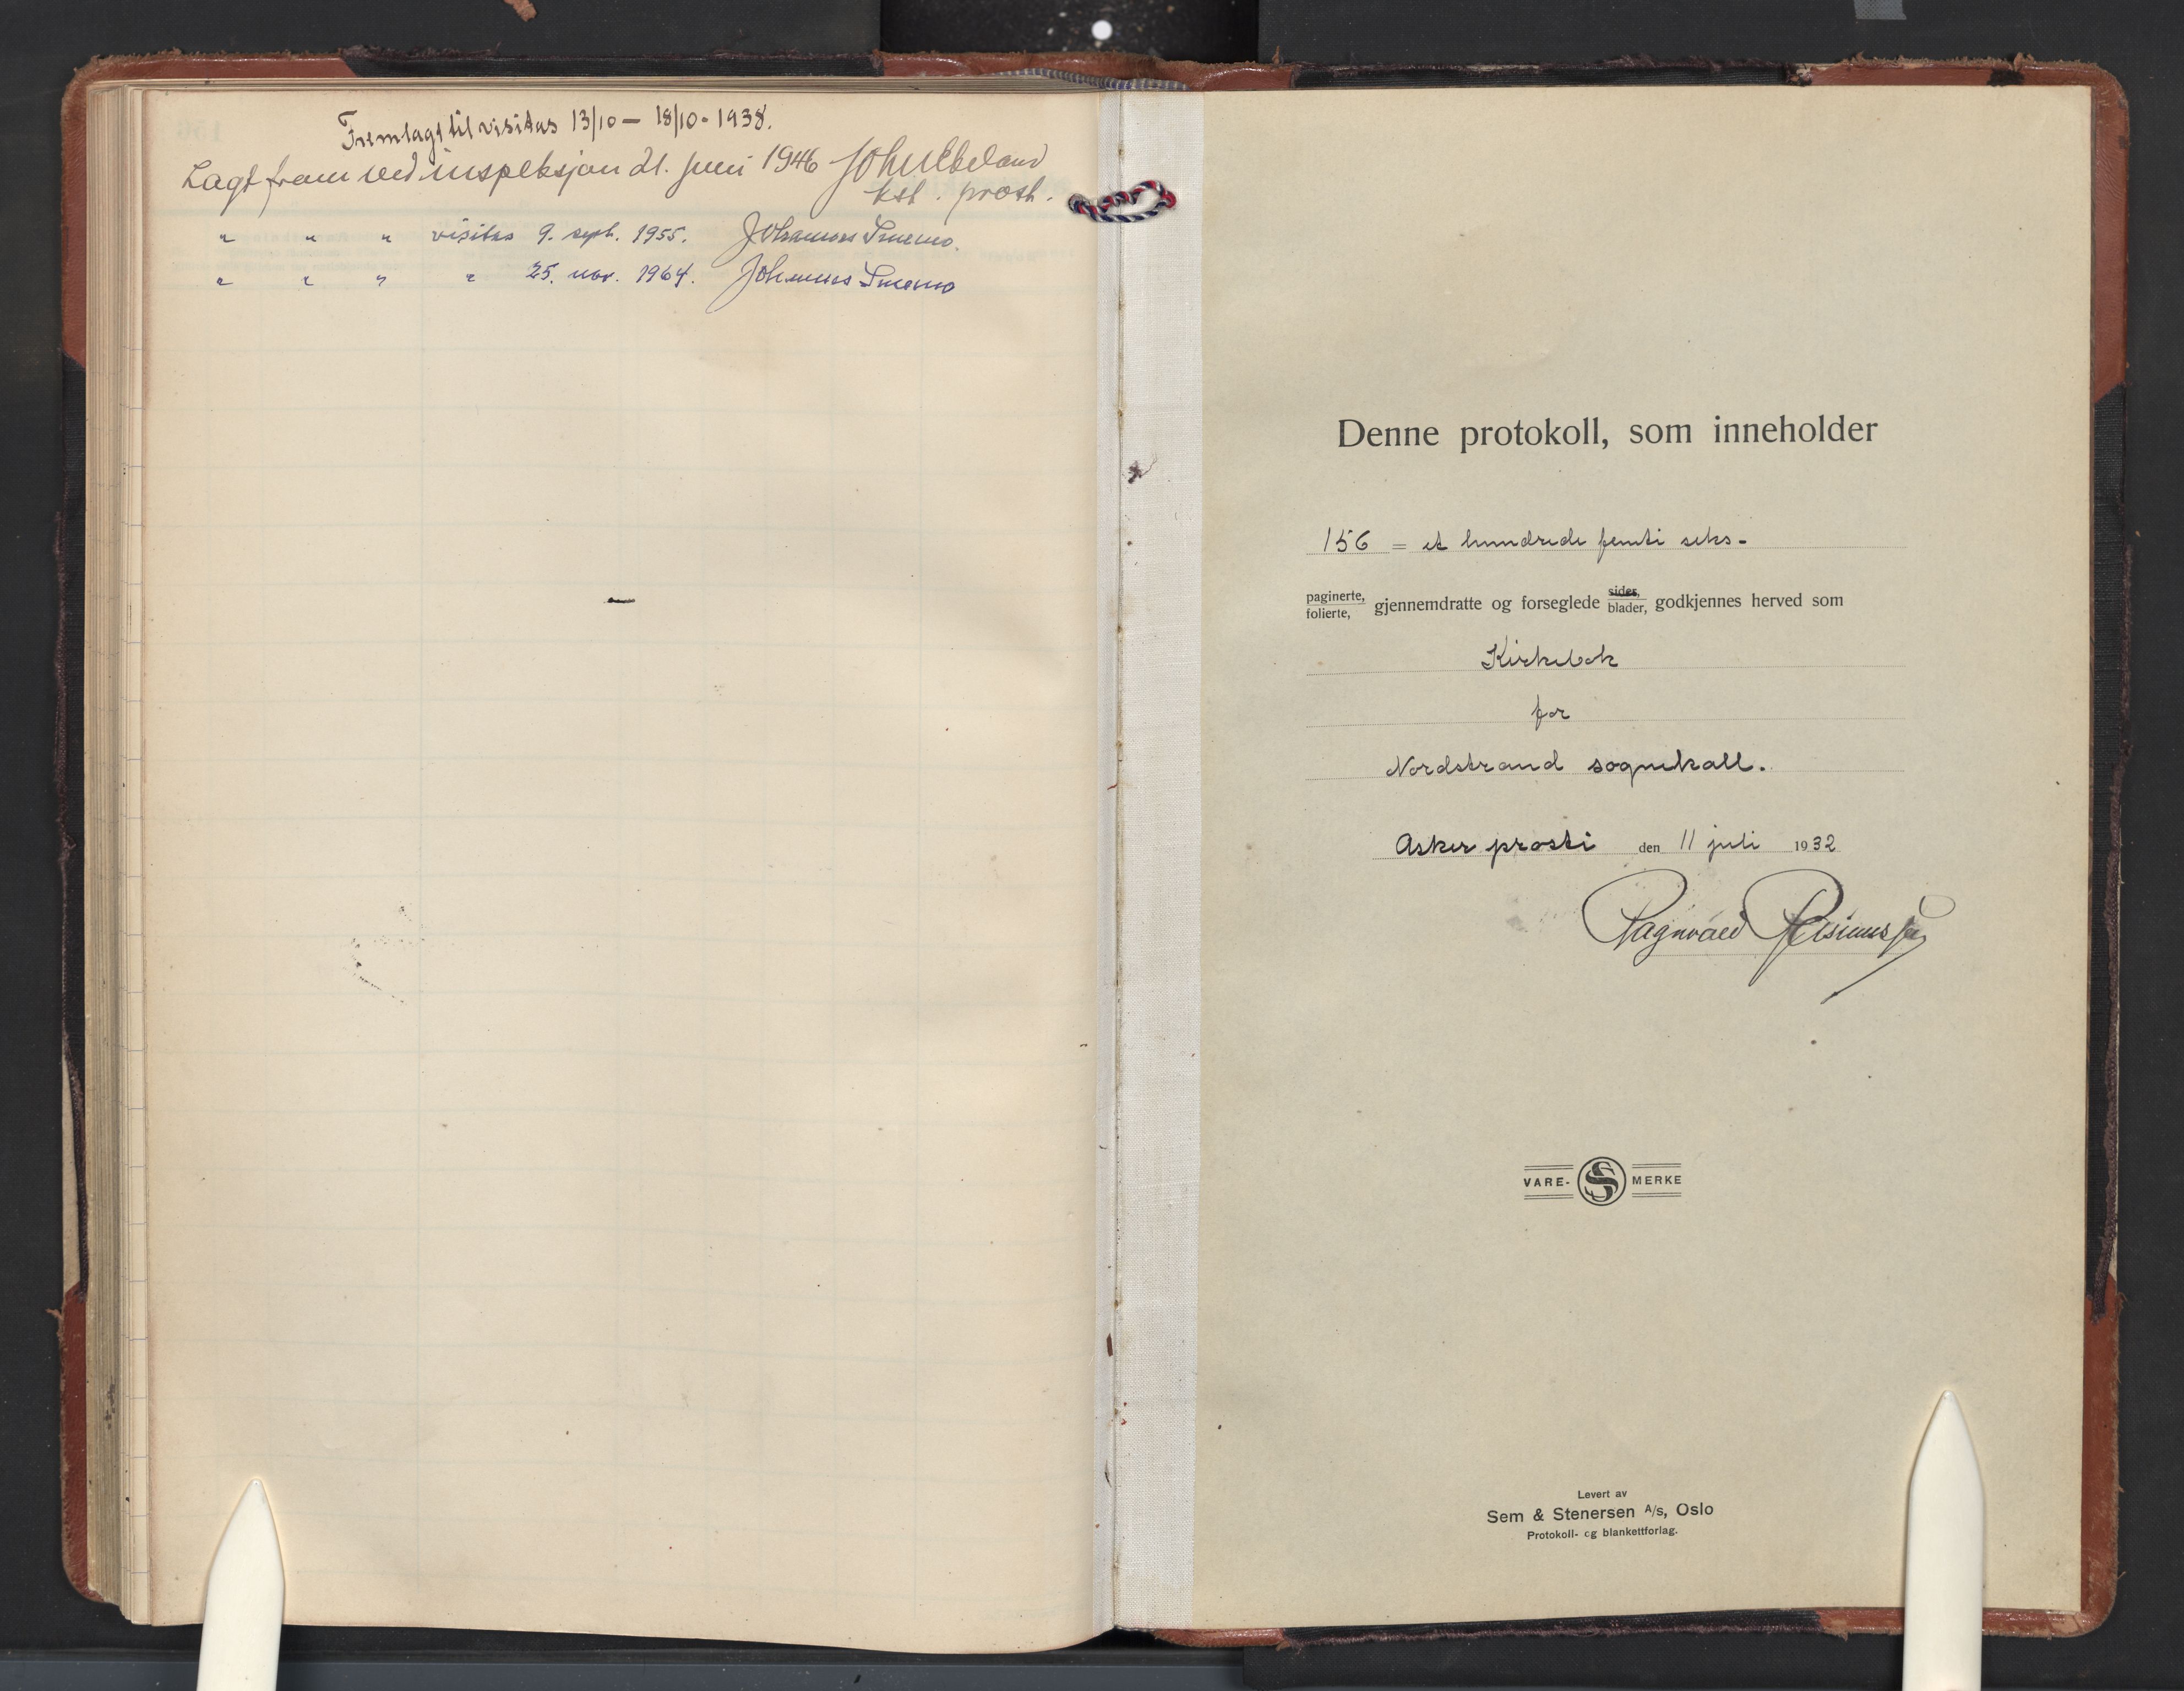 Fremlagt til visitas 13/10 – 18/10 - 1938.
Lagt fram ved inspeksjon 21. juni 1946
kst. prost.
" " " visitas 9. sept. 1955. Johannes Smemo.
" " " " 25. nov. 1964. Johannes Smemo
Denne protokoll, som inneholder
156 = et hundrede femti seks -
paginerte,
folierte, gjennemdratte og forseglede sider, blader, godkjennes herved som
Kirkebok
for
Nordstrand sognekall.
Asker prosti den 11 juli 1932
Ragnvald
VARE- S MERKE
Levert av
Sem & Stenersen A/s, Oslo
Protokoll- og blankettforlag.